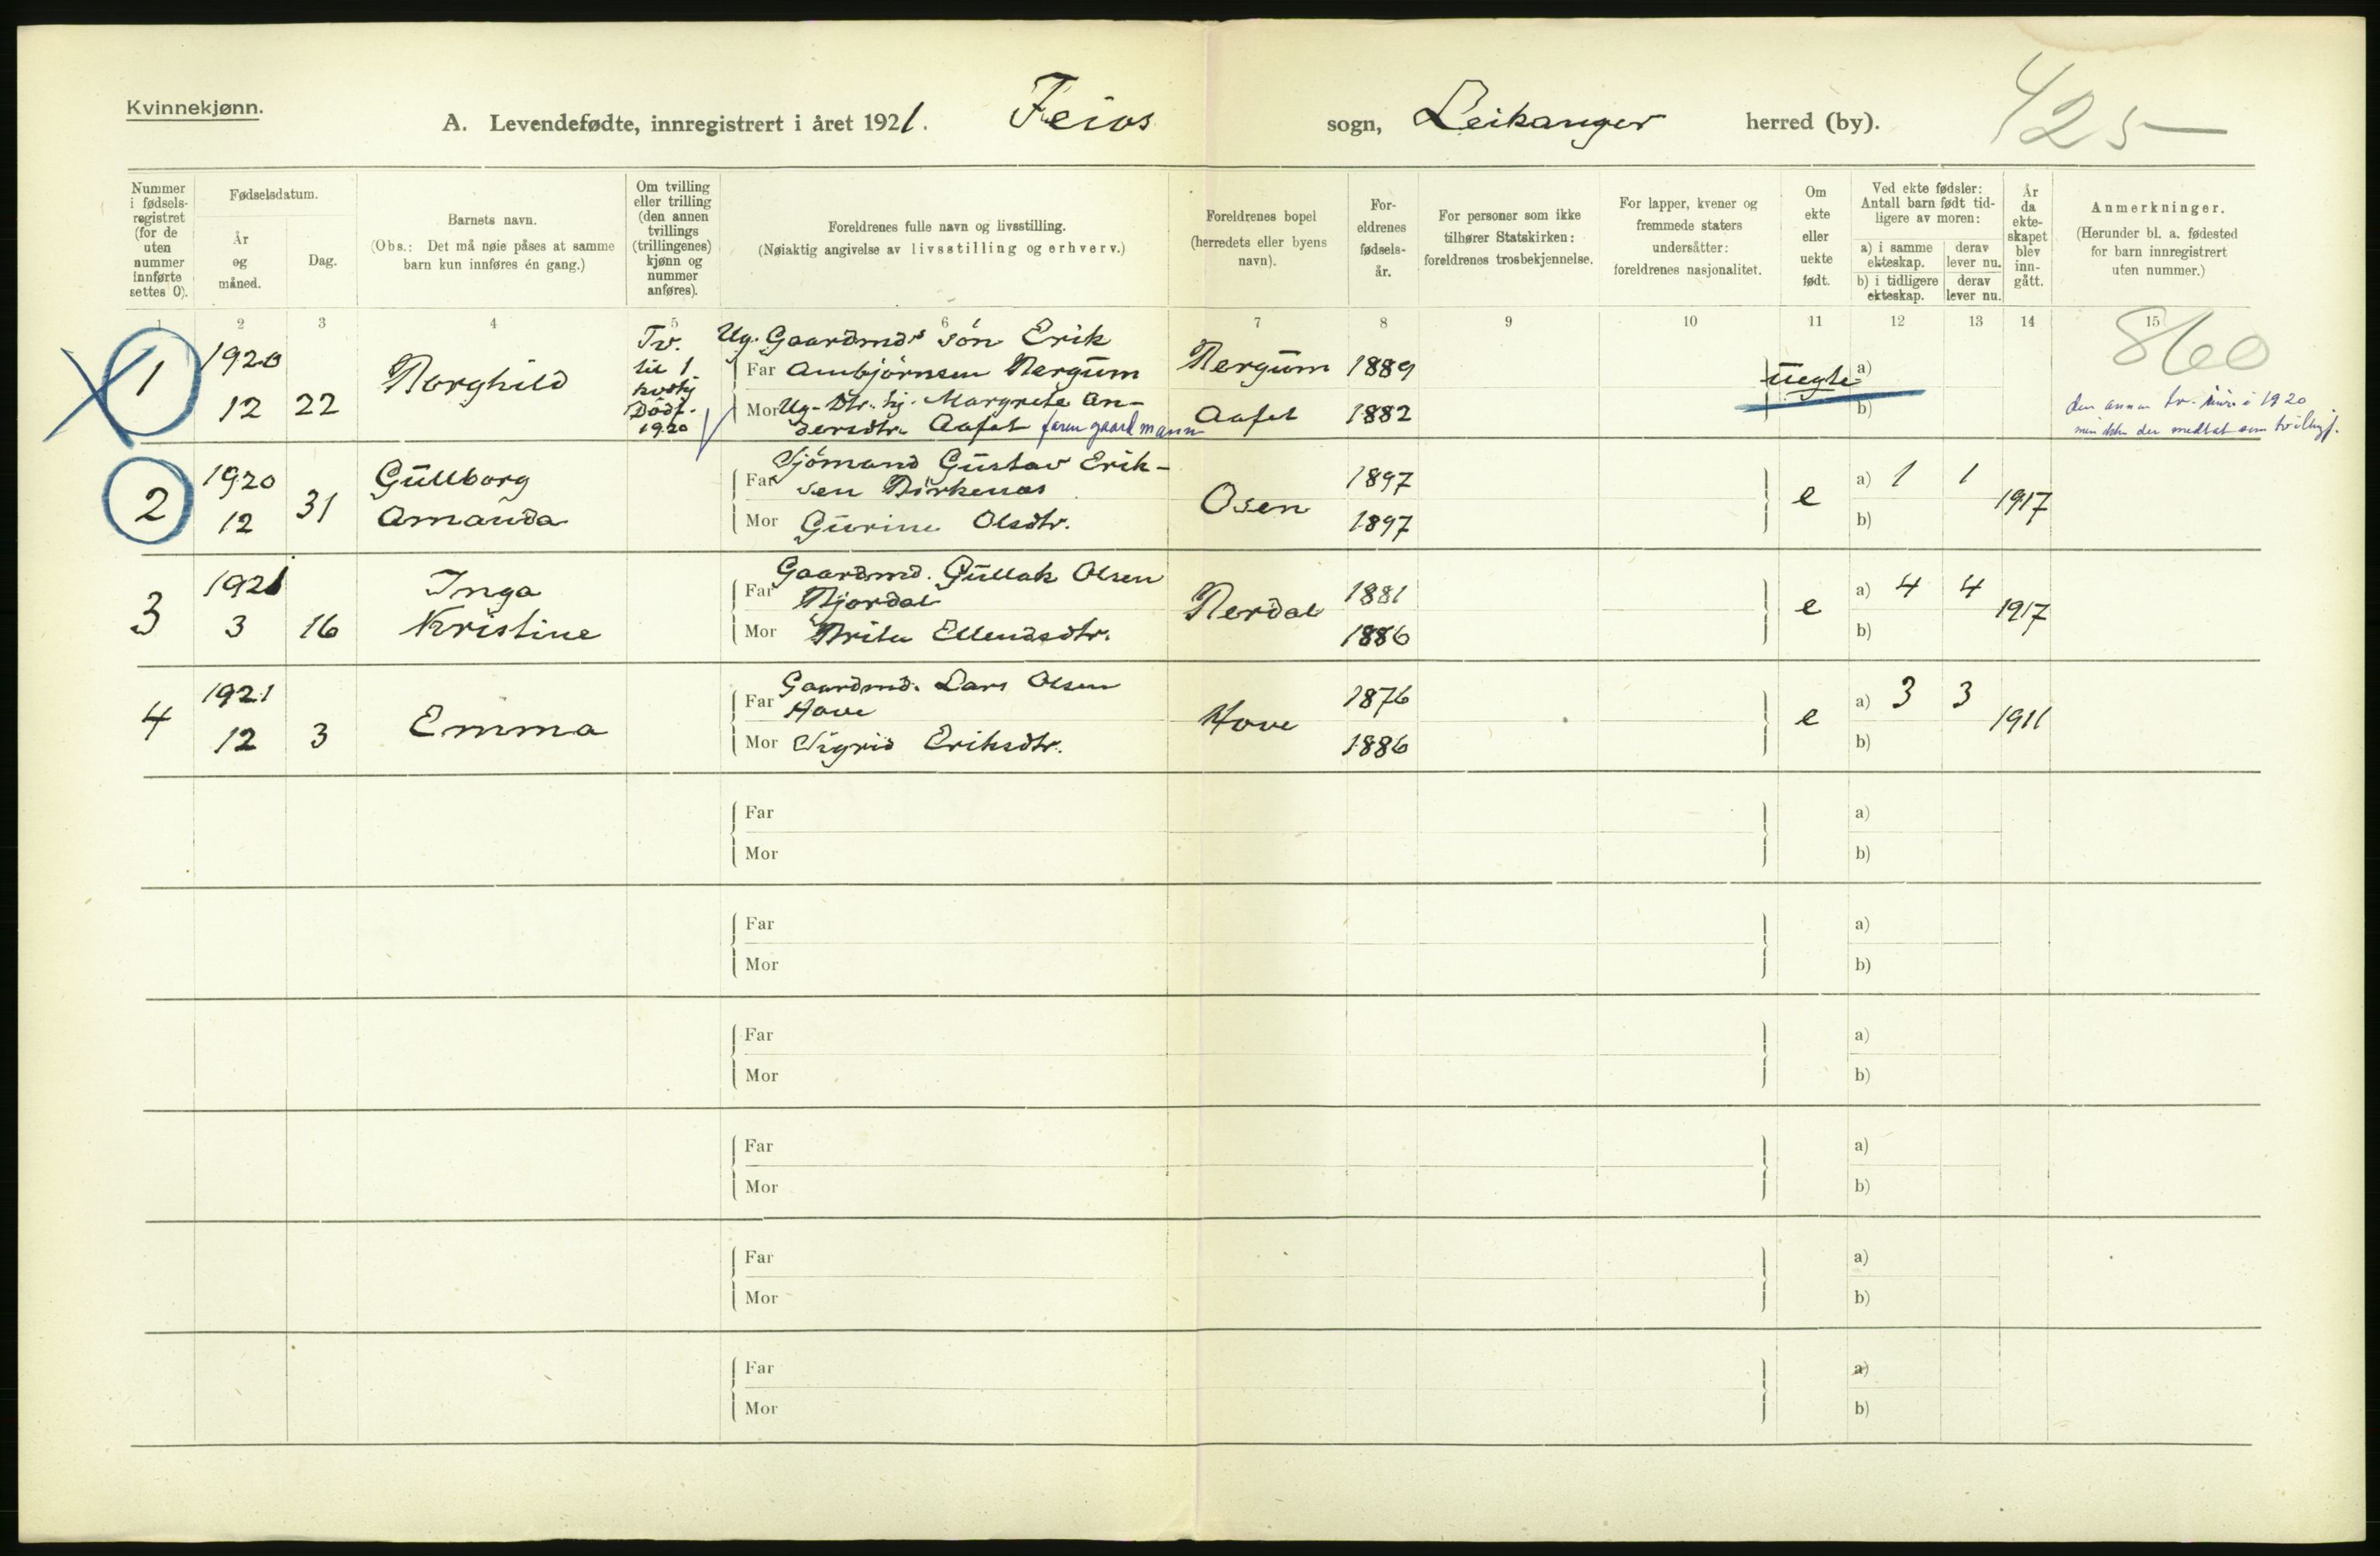 Kvinnekjønn.
A. Levendefødte, innregistrert i året 1921. Feios sogn, Leikanger herred (by). 425
Nummer i fødsels-registret (for de uten nummer innførte settes 0).
Fødselsdatum.
År og måned.
Dag.
Barnets navn.
(Obs.: Det må nøie påses at samme barn kun innføres én gang.)
Om tvilling eller trilling (den annen tvillings (trillingenes) kjønn og nummer anføres).
Foreldrenes fulle navn og livsstilling.
(Nøiaktig angivelse av livsstilling og erhverv.)
Foreldrenes bopel (herredets eller byens navn).
For-eldrenes fødsels-år.
For personer som ikke tilhører Statskirken: foreldrenes trosbekjennelse.
For lapper, kvener og fremmede staters undersåtter: foreldrenes nasjonalitet.
Om ekte eller uekte født.
Ved ekte fødsler: Antall barn født tid-ligere av moren:
a) i samme ekteskap. derav lever nu.
b) i tidligere ekteskap. derav lever nu.
År da ekte-skapet blev inn-gått.
Anmerkninger.
(Herunder bl. a. fødested for barn innregistrert uten nummer.)
1 2 3 4 5 6 7 8 9 10 11 12 13 14 15
860
1 1920 12 22 Borghild
Tv. til 1 Dödf. 1920
Ug. Gaardmds sön Erik
Far Ambjörnsen Bergum Bergum 1889
Mor Ug. Dtr. hj. Margrete An-
dersdtr. Aafet faren gaardmann Aafet 1882
uegte a) b)
den annen tv. i 1920
2 1920 12 31 Gullborg Amanda
Sjömand Gustav Erik-
Far sen Birkenes 1897
Mor Gurine Olsdtr. Osen 1897
e a) 1 1 b) 1917
3 1921 3 16 Inga Kristine
Gaardmd. Gullak Olsen
Far Njordal 1881
Mor Brita Ellendsdtr. Nerdal 1886
e a) 4 4 b) 1917
4 1921 12 3 Emma
Gaardmd. Lars Olsen
Far Hove 1876
Mor Sigrid Eriksdtr. Hove 1886
e a) 3 3 b) 1911
Far a)
Mor b)
Far a)
Mor b)
Far a)
Mor b)
Far a)
Mor b)
Far a)
Mor b)
Far a)
Mor b)